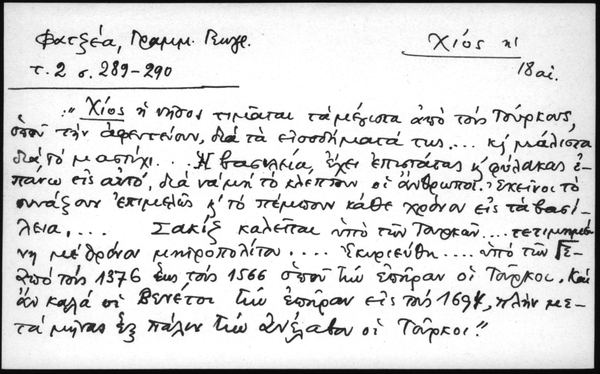 Φατζέα, Γραμμ. Γεωγρ.
τ. 2 σ. 289-290
Χίος η'
18 αἰ.
"Χίος ἡ νῆσος τιμᾶται τὰ μέγιστα ἀπὸ τοὺς Τούρκους,
ὁποῦ τὴν ἀφεντεύουν, διὰ τὰ εἰσοδήματά της,... κ' μάλιστα
διὰ τὸ μαστίχι... Ἡ βασιλεία, ἔχει ἐπιστάτας κ' φύλακας ἐ-
πάνω εἰς αὐτό, διὰ νὰ μὴ τὸ κλέπτουν οἱ ἄνθρωποι. Ἐκεῖνοι τὸ
συνάζουν ἐπιμελῶς κ' τὸ πέμπουν κάθε χρόνον εἰς τὰ βασί-
λεια,... Σακὶζ καλεῖται ὑπὸ τῶν Τουρκῶν.... τετιμημέ-
νη μὲ θρόνον μητροπολίτου.... Ἐκυριεύθη.... ὑπὸ τῶν Γε-
ἀπὸ τοὺς 1376 ἕως τοὺς 1566 ὁποῦ τὴν ἐπῆραν οἱ Τοῦρκοι. Καὶ
ἂν καλὰ οἱ Βενέτοι τὴν ἐπῆραν εἰς τοὺς 1694, πλὴν με-
τὰ μῆνας ἓξ πάλιν τὴν ἀνέλαβον οἱ Τοῦρκοι."